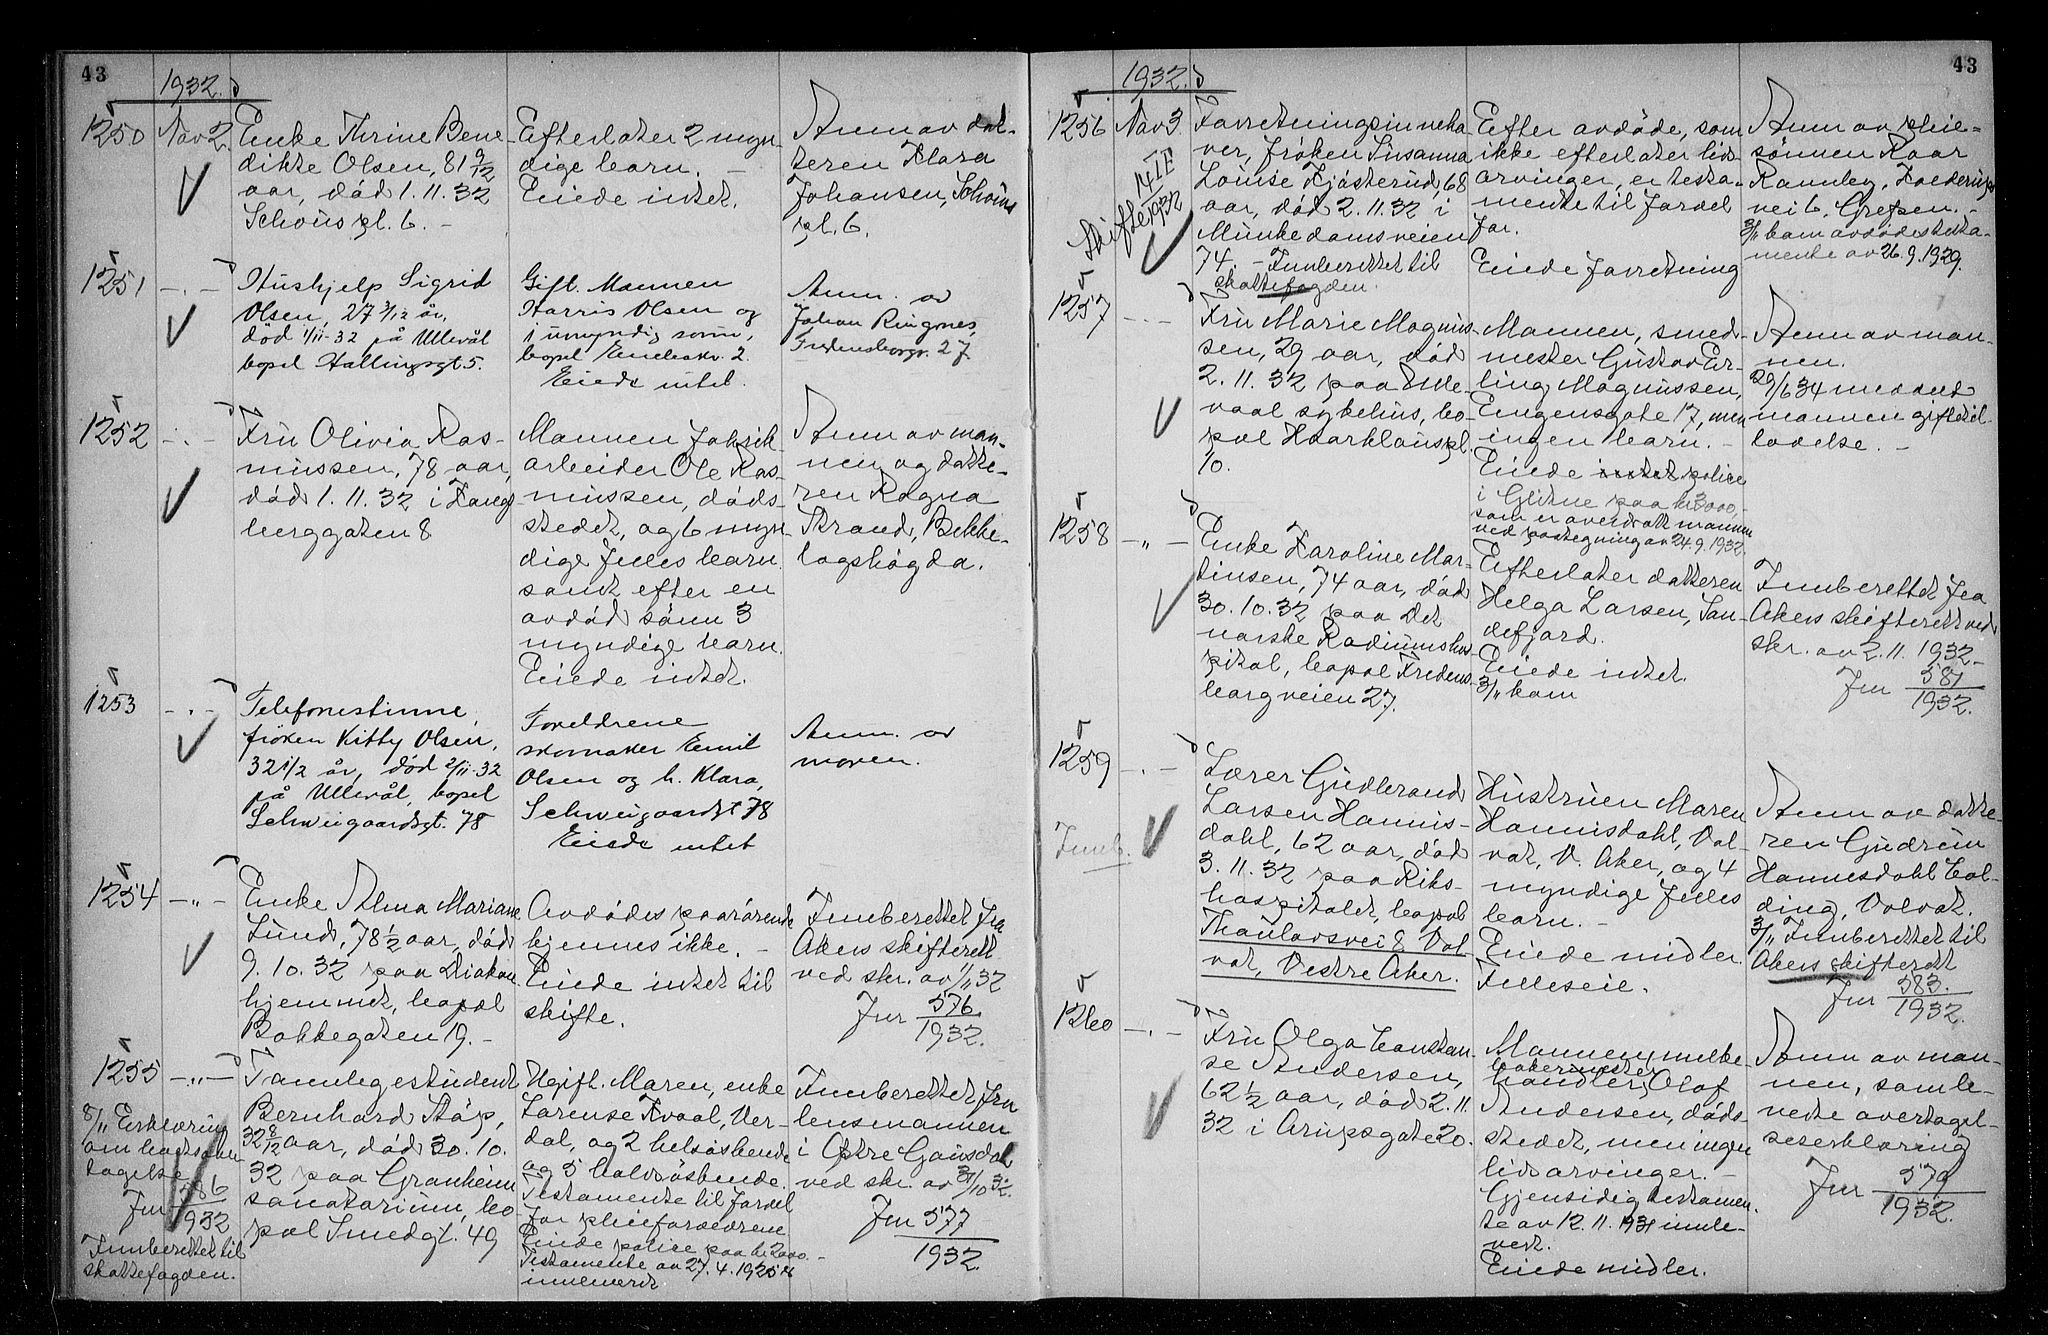 43
1932.
1250
Nov 2.
Enke Thrine Bene
dikte Olsen, 81 9/12
aar, död 1.11.32
Schous pl. 6. -
Efterlater 2 myn
dige barn. -
Eiede intet.
Anm av dat-
teren Klara
Johansen, Schous
pl. 6.
1251
Hushjelp Sigrid
Olsen, 27 3/12 år,
död 1/11-32 på Ullevål
bopel Hallingsgt 5.
Gift. Mannen
Harris Olsen og
1 umyndig sönn,
bopel
Eiede intet.
Anm. av
Johan Ringnes
Fredensborgv. 27
1252
Fru Olivia Ras-
mussen, 78 aar,
död 1.11.32 i Langs
berggaten 8
Mannen fabrik
arbeider Ole Ras-
mussen, döds-
stedet, og 6 myn
dige felles barn
samt efter en
avdöd sönn 3
myndige barn.
Eiede intet.
Anm av man-
nen og datte-
ren Ragna
Strand, Bekke-
lagshögda.
1253
Telefonistinne,
fröken Kitty Olsen,
32 1/2 år, död 2/11-32
på Ullevål, bopel
Schweigaardsgt. 78
Foreldrene
skomaker Emil
Olsen og h. Klara,
Schweigaardsgt 78
Eiede intet
Anm. av
moren.
1254
Enke Alma Mariane
Lund, 78 1/2 aar, död
9.10.32 paa Diakon
hjemmet, bopel
Bakkegaten 19. -
Avdödes paarörende
kjennes ikke. -
Eiede intet til
skifte.
Innberettet fra
Akers skifterett
ved skr. av 1/11 32
Jnr 576
1932.
1255
8/11 Erklæring
om
tagelse
Jnr 586
1932
Innberettet til
skattefogden.
Tannlegestudent
Bernhard Stöp,
32 8/12 aar, död 30.10.
32 paa Granheim
sanatorium, bo
pel Smedgt. 49
Ugift. Moren, enke
Lorense Kvaal, Ver-
dal, og 2 helsöskende
og 5 halvsöskende.
Testamente til fordel
for pleieforeldrene
Eiede police paa kr 2000.-
Testamente av 27.4.1925
innlevert
Innberettet fra
lensmannen
i Östre Gausdal
ved skr. av 31/10 32.
Jnr 577
1932.
43
1932.
1256
Nov 3.
Skifte 1932
Forretningsinneha
ver, fröken Susanna
Louise Kjösterud, 68
aar, död 2.11.32 i
Munkedamsveien
74. - Innberettet til
skattefogden.
Efter avdöde, som
ikke efterlater livs
arvinger, er testa-
mente til fordel
for.
Eiede forretning
Anm av pleie-
sönnen Roar
vei 6, Grefsen. -
3/11 kom avdödes testa-
mente av 26.9.1929.
1257
Fru Marie Magnus-
sen, 29 aar, död
2.11.32 paa Ulle-
vaal sykehus, bo-
pel Haarklouspl.
10.
Mannen, smed-
mester Gustav Er-
ling Magnussen,
Eugensgate 17, men
ingen barn. -
Eiede intet police
i Glitne paa kr 3000,-
som er overdratt mannen
ved paategning av 24.9.1932.
Anm av man-
nen.
29/6 34 meddelt
mannen giftetil-
ladelse. -
1258
Enke Karoline Mar-
tinsen, 74 aar, död
30.10.32 paa Det
norske Radiumshos
pital, bopel Fredens
borgveien 27.
Efterlater datteren
Helga Larsen, San-
defjord.
Eiede intet.
3/11 kom
Innberettet fra
Akers skifterett ved
skr. av 2.11.1932.
Jnr 581
1932.
1259
Innb.
Lærer Gudbrand
Larsen Hannis-
dahl, 62 aar, död
3.11.32 paa Riks-
hospitalet, bopel
Thaulowsvei 8 Vol
vat, Vestre Aker.
Hustruen Maren
Hannisdahl, Vol-
vat, V. Aker, og 4
myndige felles
barn. -
Eiede midler.
Felleseie.
Anm av datte-
ren Gudrun
Hannisdahl Col-
ding, Volvat.
3/11 Innberettet til
Akers skifterett
Jnr 583.
1932.
1260
Fru Olga Constan-
se Andersen,
62 1/2 aar, död 2.11.
32 i Arupsgate 20.
Mannen, melke-
bakermester
handler, Olaf
Andersen, döds-
stedet, men ingen
livsarvinger. -
Gjensidig testamen-
te av 12.11.1931 innle-
vert.
Eiede midler.
Anm av man-
nen, som le-
verte overtagel-
seserklæring
Jnr 579
1932.